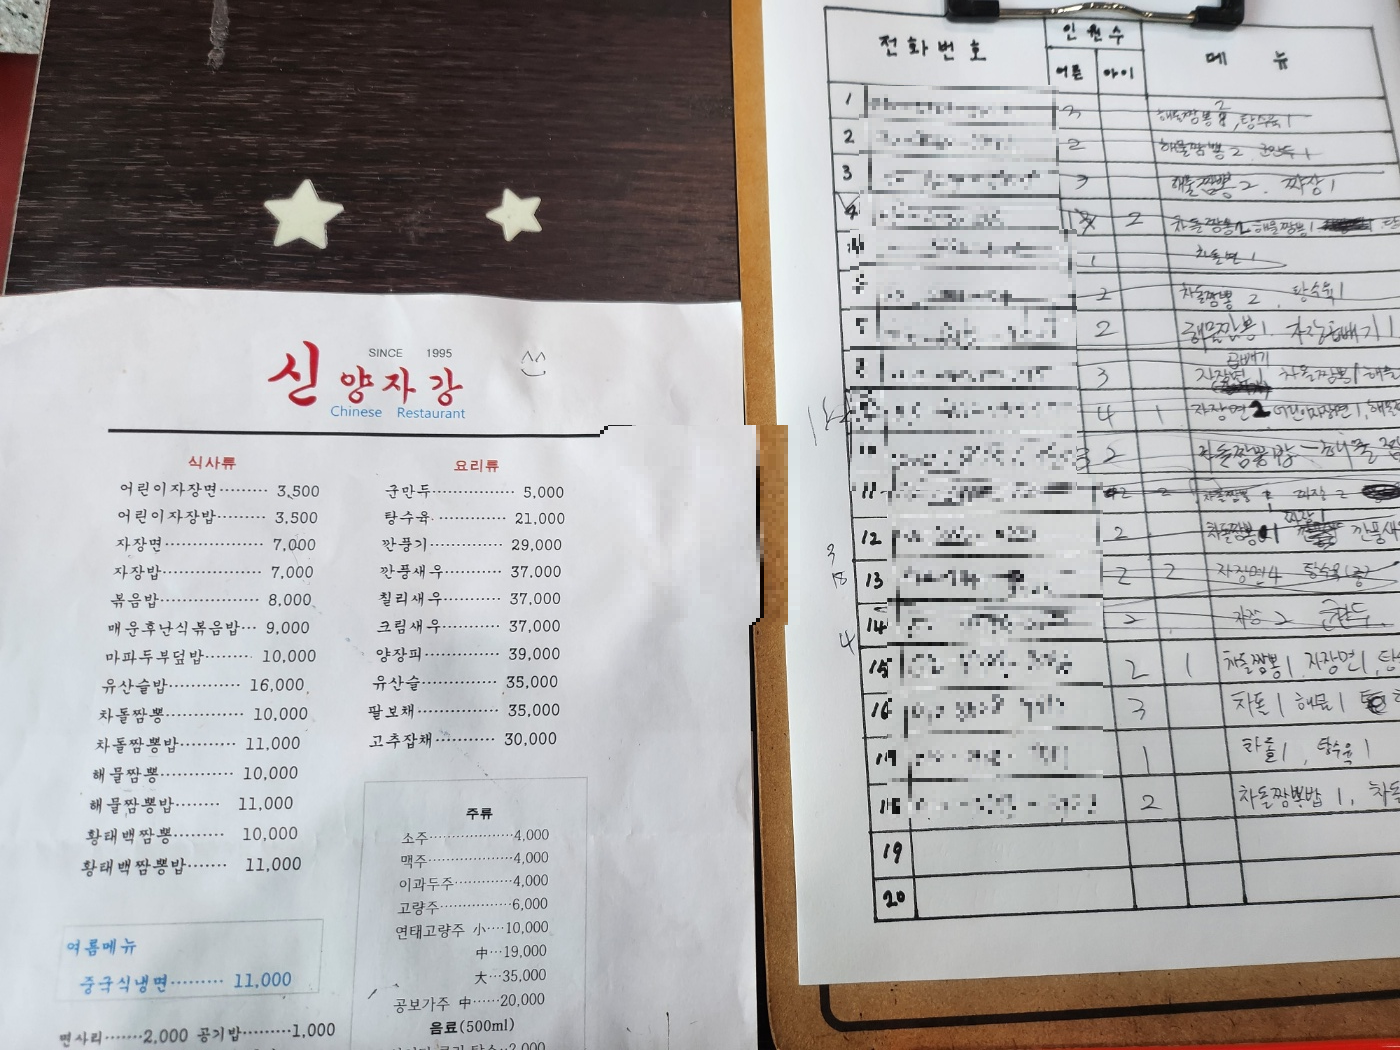 SINCE 1995
신양자강
Chinese Restaurant
식사류
어린이자장면········ 3,500
어린이자장밥········ 3,500
자장면·············· 7,000
자장밥·············· 7,000
볶음밥·············· 8,000
매운후난식볶음밥··· 9,000
마파두부덮밥········ 10,000
유산슬밥············ 16,000
차돌짬뽕············· 10,000
차돌짬뽕밥·········· 11,000
해물짬뽕············ 10,000
해물짬뽕밥······· 11,000
황태백짬뽕········ 10,000
황태백짬뽕밥······· 11,000
여름메뉴
중국식냉면········· 11,000
면사리·······2,000 공기밥·········1,000
요리류
군만두············· 5,000
탕수육············· 21,000
깐풍기············· 29,000
깐풍새우·········· 37,000
칠리새우·········· 37,000
크림새우·········· 37,000
양장피············· 39,000
유산슬············· 35,000
팔보채············· 35,000
고추잡채·········· 30,000
주류
소주····················4,000
맥주····················4,000
이과두주·············4,000
고량주················6,000
연태고량주 小····10,000
中···19,000
大···35,000
공보가주 中······20,000
음료(500ml)
전화번호 인원수 메뉴
어른 아이
1 3 해물짬뽕 2, 탕수육 1
2 2 해물짬뽕 2. 군만두 1
3 3 해물짬뽕 2. 짜장 1
4 1 2 차돌짬뽕 2 해물짬뽕 1
1 차돌면 1
2 차돌짬뽕 2. 탕수육 1
7 2 해물짬뽕 1 자장곱배기 1
8 3 자장면 1 곱배기 차돌짬뽕 1
9 4 1 자장면 2 어린이자장면 1,
10 2 차돌짬뽕밥
11 2 2 차돌짬뽕 2 짜장 2
12 2 차돌짬뽕 1 짜장 1
13 2 2 자장면4 탕수육(중)
14 2 자장 2 군만두
15 2 1 차돌짬뽕 1, 자장면 1,
16 3 차돌 1 해물 1
17 1 차돌 1, 탕수육 1
18 2 차돌짬뽕밥 1,
19
20
3
18
4